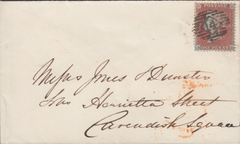 Messrs Jones & Dunster
Henrietta Street
Cavendish Square